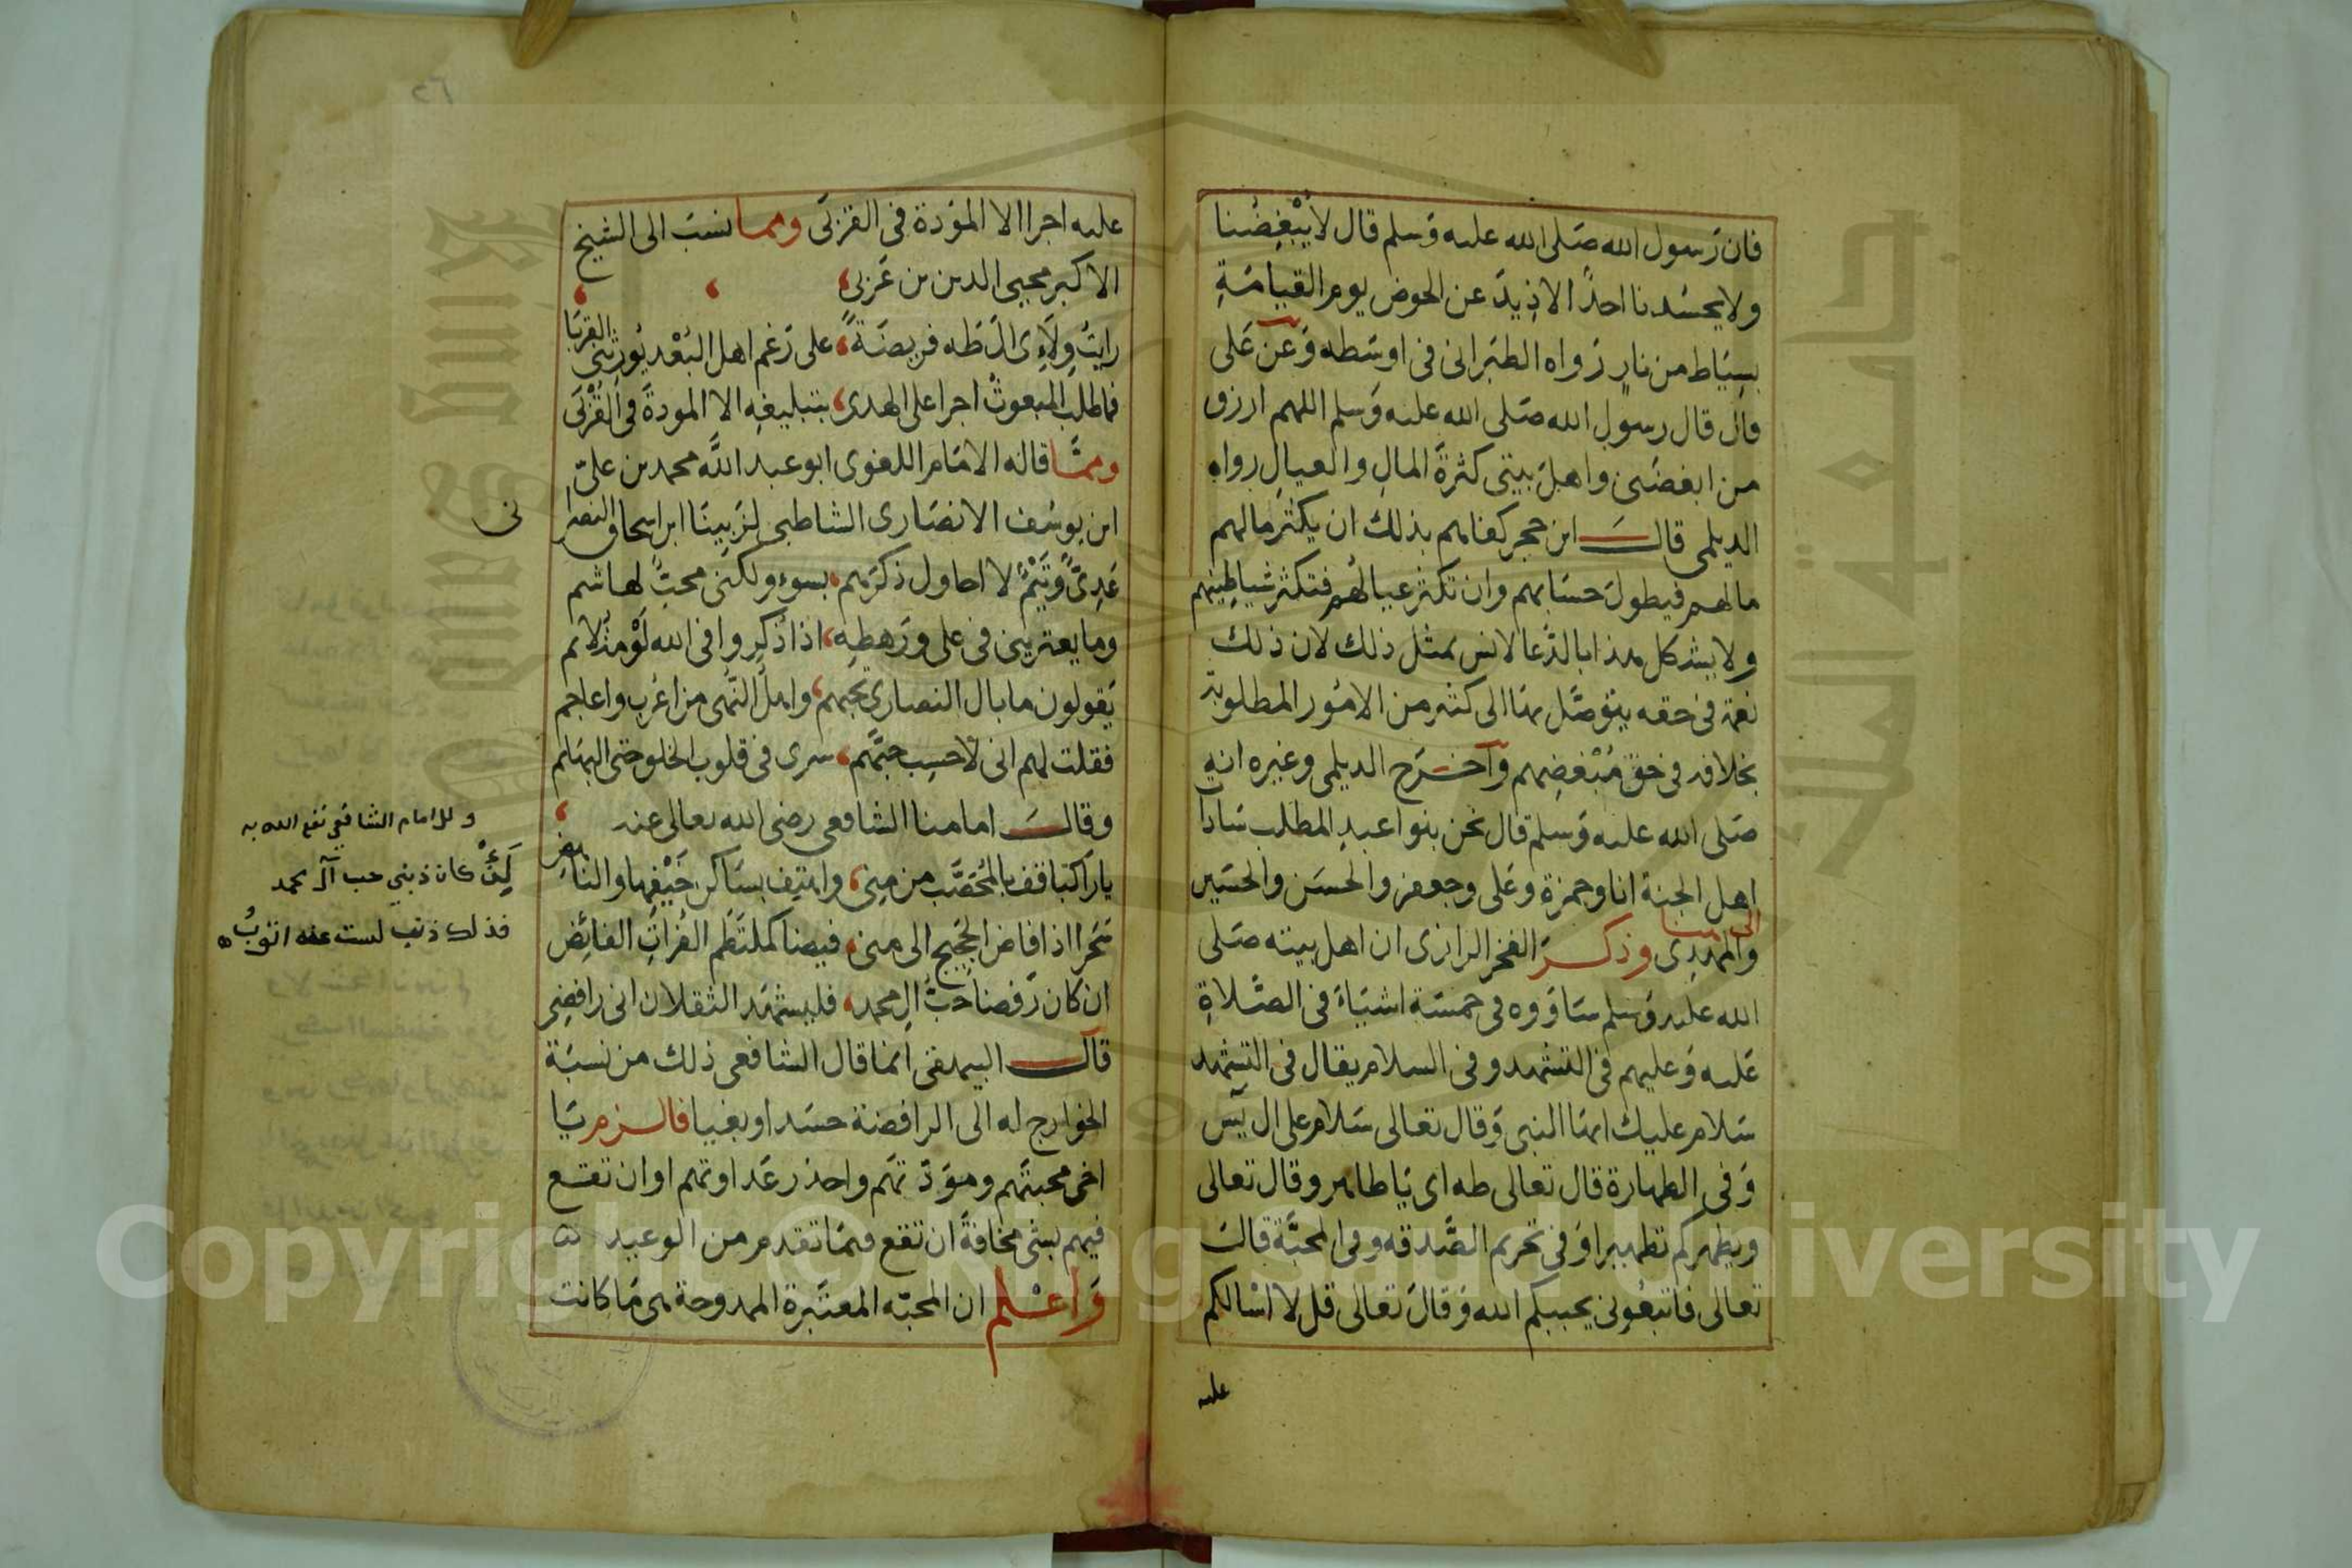 فان رسول الله صلى الله عليه وسلم قال لا يُبْغِضُنا
ولا يحسدنا احدٌ الا ذيد عن الحوض يوم القيامة
بسياط من نار رواه الطبراني في اوسطه وعن على
قال قال رسول الله صلى الله عليه وسلم اللهم ارزق
من ابغضنى واهل بيتى كثرة المال والعيال رواه
الديلمى قال ابن حجر كفاهم بذلك ان يكثر مالهم
مالهم فيطول حسابهم وان تكثر عيالهم فتكثر شياطينهم
ولا يشكل هذا بالدعا لانس بمثل ذلك لان ذلك
نعمة فى حقه يتوصل بها الى كثير من الامور المطلوبة
بخلافه فى حق مُبْغضِهم وآخرج الديلمى وغيره انه
صلى الله عليه وسلم قال نحن بنوا عبد المطلب سادا
اهل الجنة انا وحمزة وعلى وجعفر والحسن والحسين
والمهدى وذكر الفخر الرازى ان اهل بيته صلى
الله عليه وسلم ساووه فى خمسة اشياء فى الصلاة
عليه وعليهم فى التشهد وفى السلام يقال فى التشهد
سلام عليك ايها النبى وقال تعالى سلام على ال يس
وفى الطهارة قال تعالى طه اى يا طاهر وقال تعالى
ويطهركم تطهيرا وفى تحريم الصدقه وفى المحبة قال
تعالى فاتبعونى يحببكم الله وقال تعالى قل لا اسالكم
عليه
عليه اجرا الا المودة فى القربى ومما نسب الى الشيخ
الاكبر محيى الدين بن عربى
رايت ولاءى ال طه فريضة، على رغم اهل البُعْد يُورِثنى القربا
فما طلب المبعوث اجرا على الهدى، بتبليغه الا المودة فى القُرْبى
ومما قاله الامام اللغوى ابو عبد الله محمد بن علىّ
ابن يوسف الانصارى الشاطبى لزبينا ابن اسحاق النصرا
نى
عَدِىّ وتَيْمٌ لا احاول ذكرهم، بسوء ولكنى محبّ لهاشم
وما يعترينى فى على ورهطه، اذا ذكروا فى الله لَوْمة لائم
يقولون ما بال النصارى تحبهم، واهل النهى من اعرب واعاجم
فقلت لهم انى لأحسِب حبّهم، سرى فى قلوب الخلق حتى البهائم
وقال امامنا الشافعى رضى الله تعالى عنه
يا راكبا قف بالمُحَصَّب من مِنى، واهتف بساكن خَيْفِها والناهِضِ
سحرا اذا فاض الحَجيج الى منى، فيضا كملتطم الفُراتِ الفائِض
ان كان رفضا حب ال محمد، فليشهد الثقلان انى رافضى
قال البيهقى انما قال الشافعى ذلك من نسبة
الخوارج له الى الرافضة حسدا وبغيا فالزم يا
اخى محبتهم ومودتهم واحذر عداوتهم او ان تقع
فيهم بشى مخافةً ان تقع فيما تقدم من الوعيد
واعْلم ان المحبّه المعتبرة الممدوحة هى ما كانت
وللامام الشافعي نفع الله به
لَئِنْ كان ذنبي حب آل محمد
فذلك ذنب لست عنه اتوبُ
Copyright © King Saud University